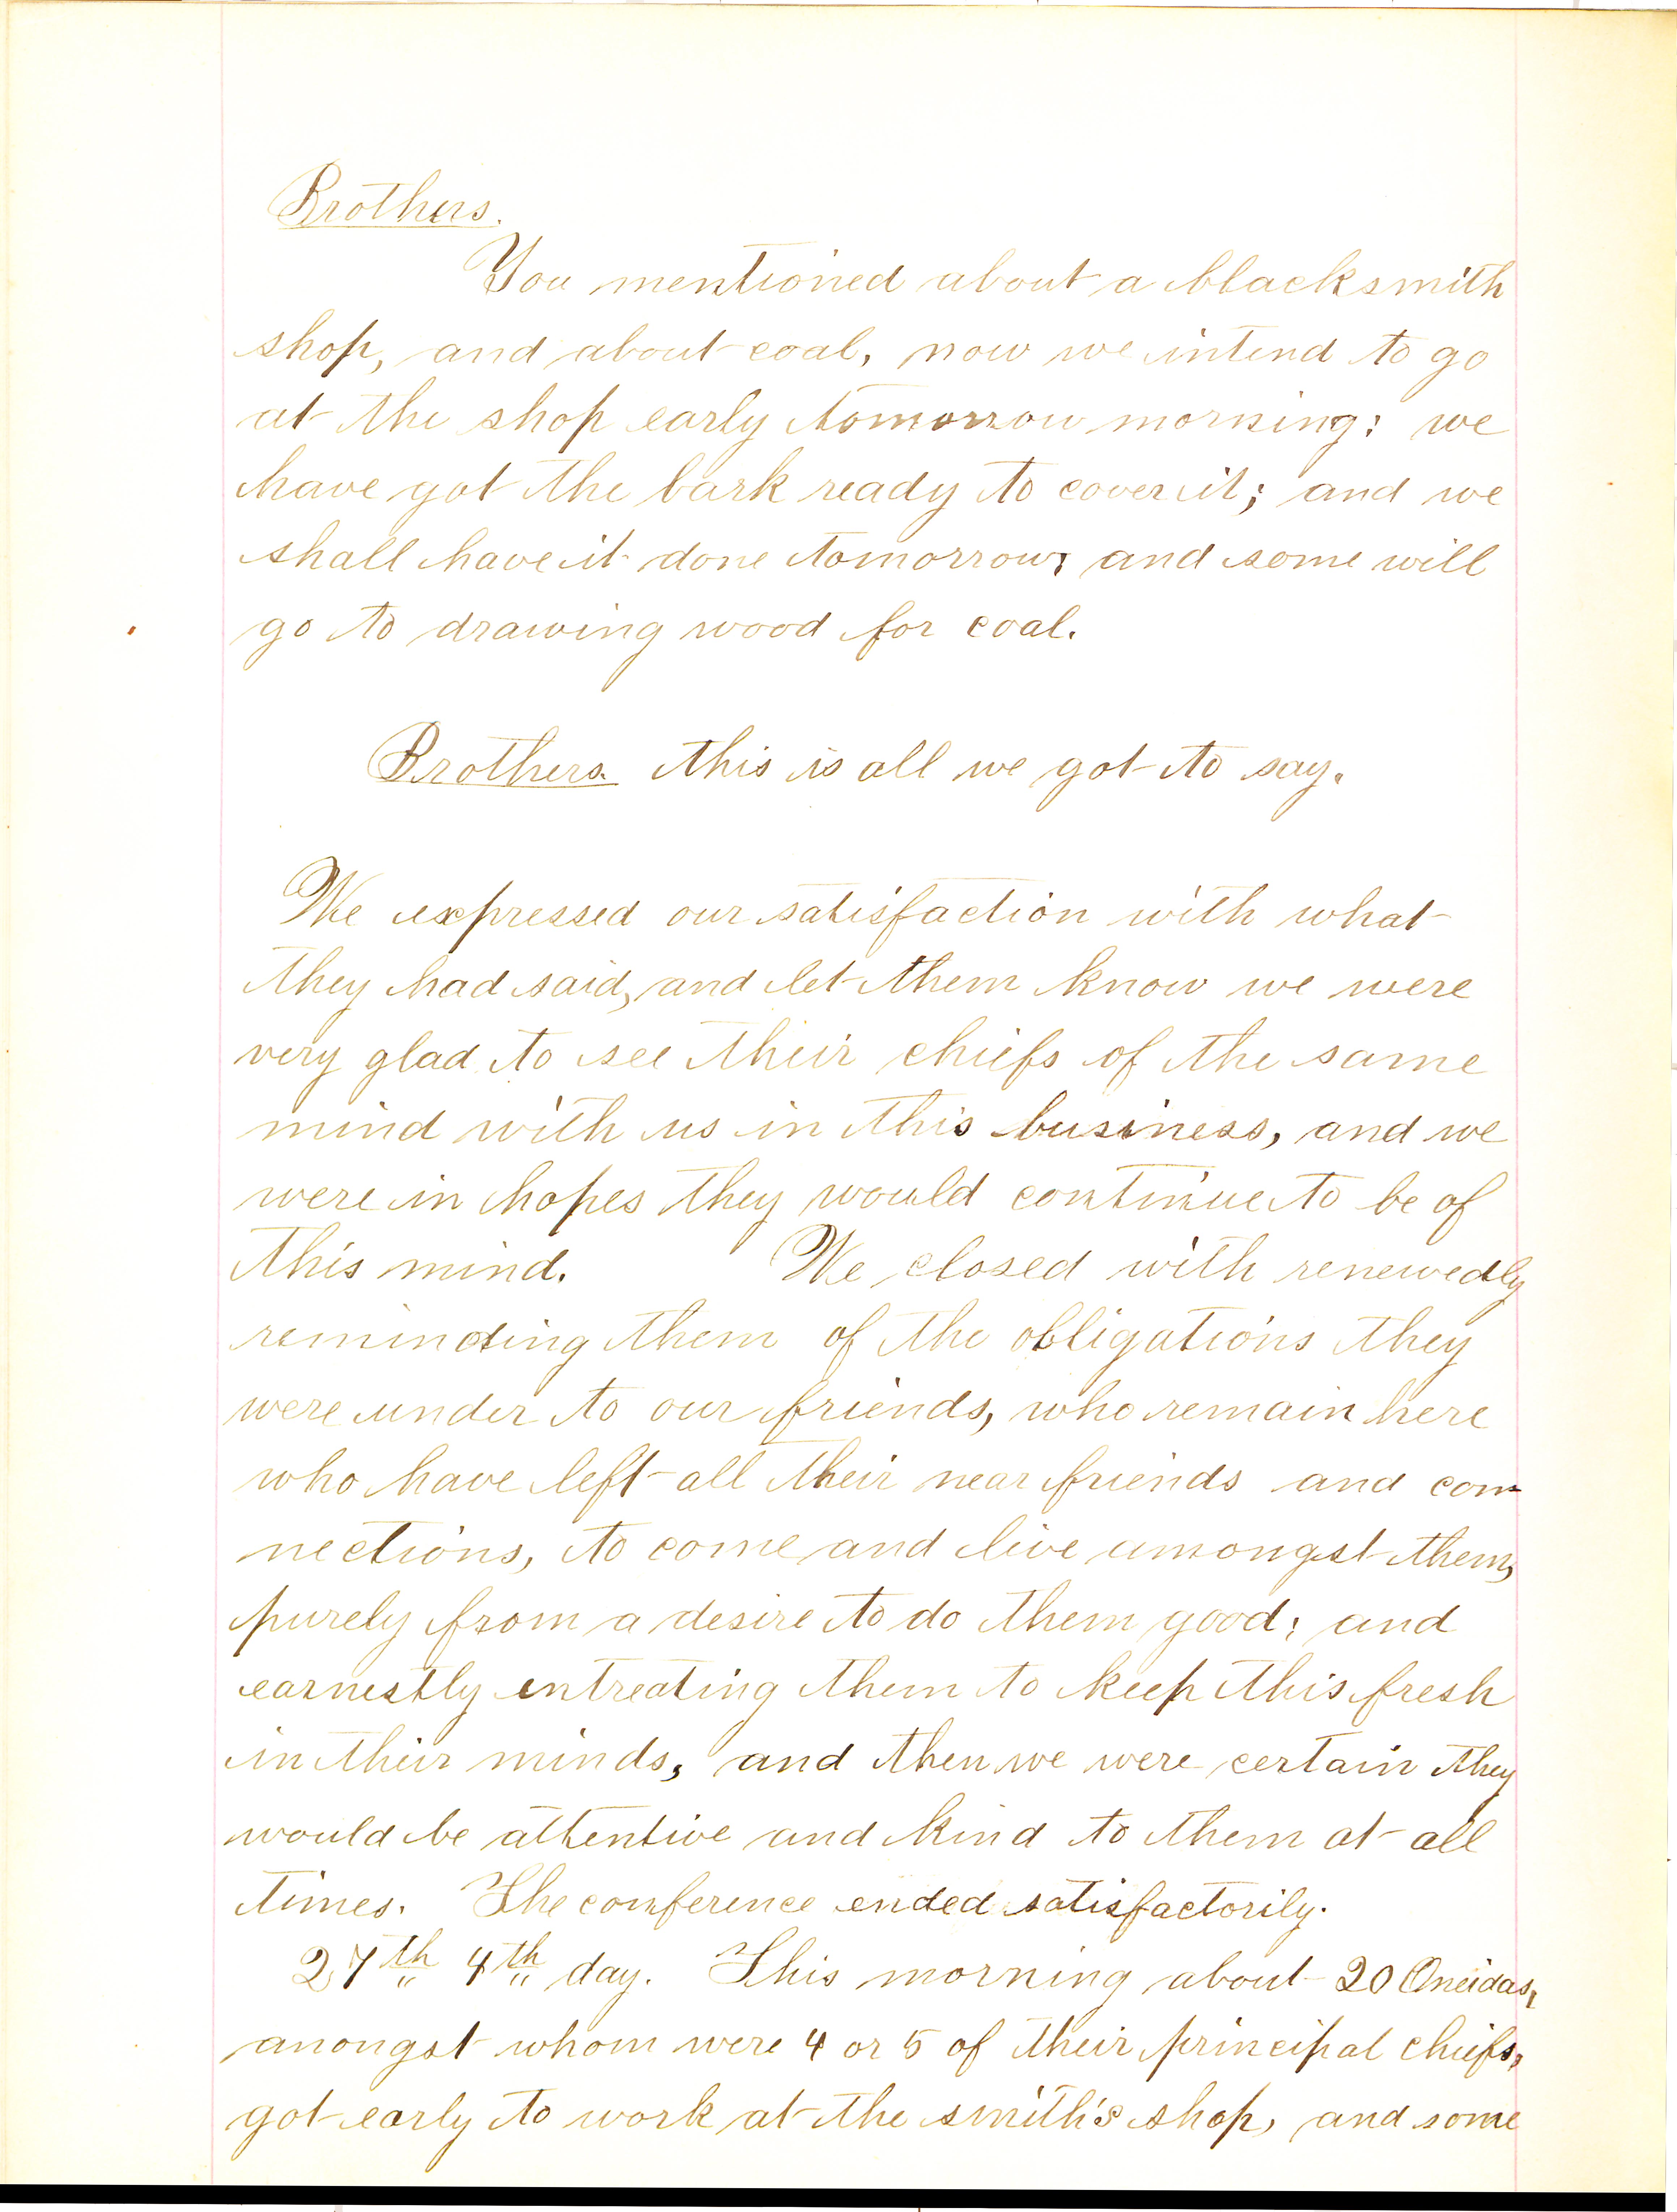 Brothers.
You mentioned about a blacksmith
shop, and about coal, now we intend to go
at the shop early tomorrow morning: we
have got the bark ready to cover it; and we
shall have it done tomorrow; and some will
go to drawing wood for coal.
Brothers. this is all we got to say.
We expressed our satisfaction with what
they had said, and let them know we were
very glad to see their chiefs of the same
mind with us in this business, and we
were in hopes they would continue to be of
this mind. We closed with renewedly
reminding them of the obligations they
were under to our friends, who remain here
who have left all their near friends and con-
nections, to come and live amongst them,
purely from a desire to do them good; and
earnestly entreating them to keep this fresh
in their minds, and then we were certain they
would be attentive and kind to them at all
times. The conference ended satisfactorily.
27th 4th day. This morning about 20 Oneidas,
anongst whom were 4 or 5 of their principal chiefs,
got early to work at the smith's shop, and some